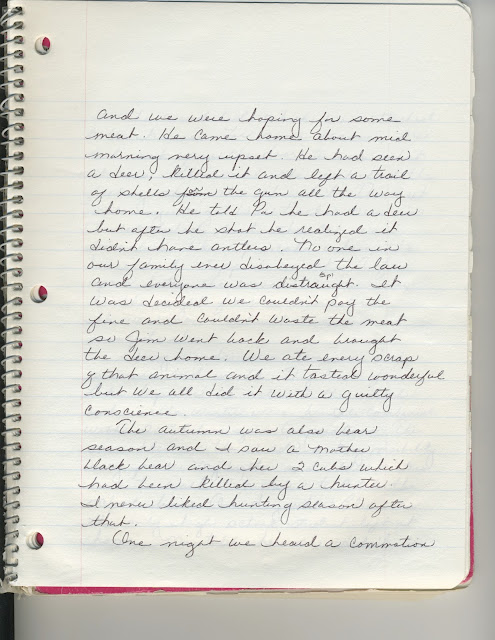 and we were hoping for some
meat. He came home about mid
morning very upset. He had seen
a deer, killed it and left a trail
of shells from the gun all the way
home. He told Pa he had a deer
but after he shot he realized it
didn't have antlers. No one in
our family ever disobeyed the law
sp?
and everyone was distraught. It
was decided we couldn't pay the
fine and couldn't waste the meat
so Jim went back and brought
the deer home. We ate every scrap
of that animal and it tasted wonderful
but we all did it with a guilty
conscience.
The autumn was also bear
season and I saw a Mother
black bear and her 2 cubs which
had been killed by a hunter.
I never liked hunting season after
that.
One night we heard a commotion